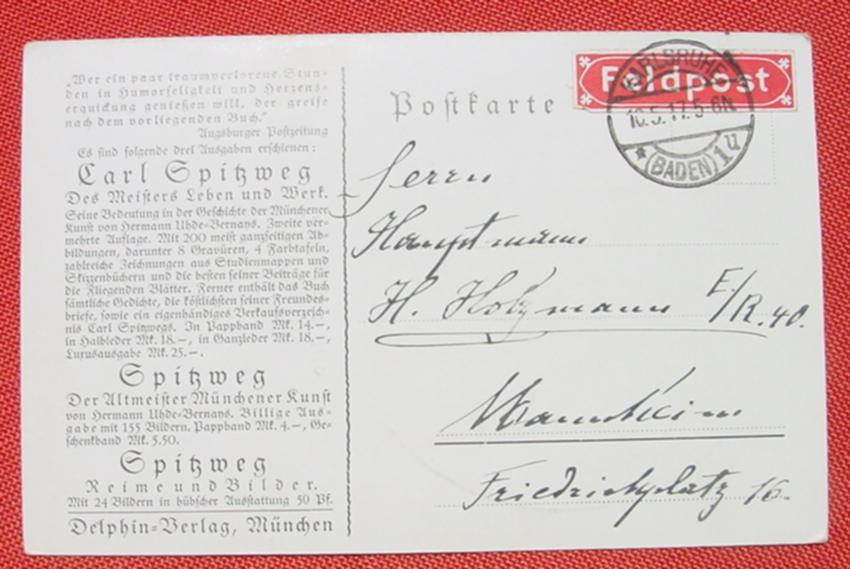 „Wer ein paar traumverlorene Stun-
den in Humorseligkeit und Herzens-
erquickung genießen will, der greife
nach dem vorliegenden Buch.“
Augsburger Postzeitung
Es sind folgende drei Ausgaben erschienen:
Carl Spitzweg
Des Meisters Leben und Werk.
Seine Bedeutung in der Geschichte der Münchener
Kunst von Hermann Uhde-Bernays. Zweite ver-
mehrte Auflage. Mit 200 meist ganzseitigen Ab-
bildungen, darunter 8 Gravüren, 4 Farbtafeln,
zahlreiche Zeichnungen aus Studienmappen und
Skizzenbüchern und die besten seiner Beiträge für
die Fliegenden Blätter. Ferner enthält das Buch
sämtliche Gedichte, die köstlichsten seiner Freundes-
briefe, sowie ein eigenhändiges Verkaufsverzeich-
nis Carl Spitzwegs. In Pappband Mk. 14.—,
in Halbleder Mk. 18.—, in Ganzleder Mk. 18.—,
Luxusausgabe Mk. 25.—.
Spitzweg
Der Altmeister Münchener Kunst
von Hermann Uhde-Bernays. Billige Aus-
gabe mit 155 Bildern. Pappband Mk. 4.—, Ge-
schenkband Mk. 5.50.
Spitzweg
Reime und Bilder.
Mit 24 Bildern in hübscher Ausstattung 50 Pf.
Delphin-Verlag, München
Postkarte
Feldpost
KARLSRUHE
10.5.17.5-6N
* (BADEN) 1u
Herrn
Hauptmann
H. Holzmann E/R.40.
Mannheim
Friedrichplatz 16.